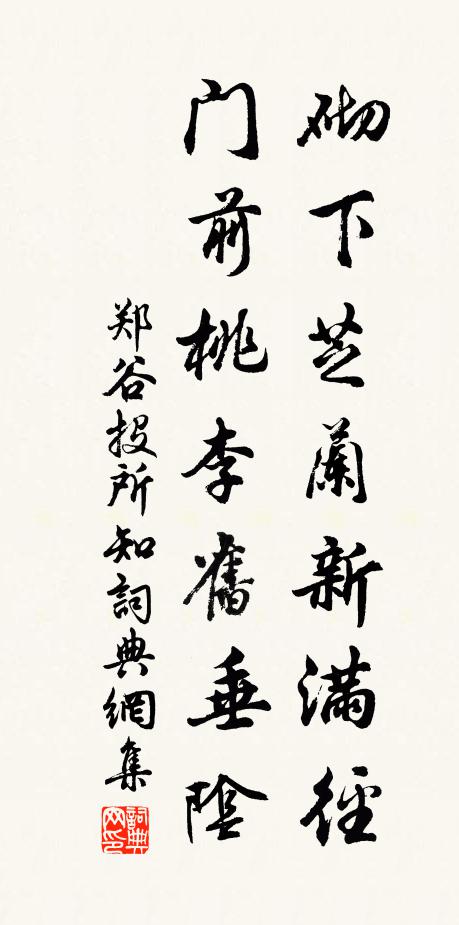 砌下芝蘭新滿徑
門前桃李舊垂陰
郑谷投所知詞典網集
詞典网印